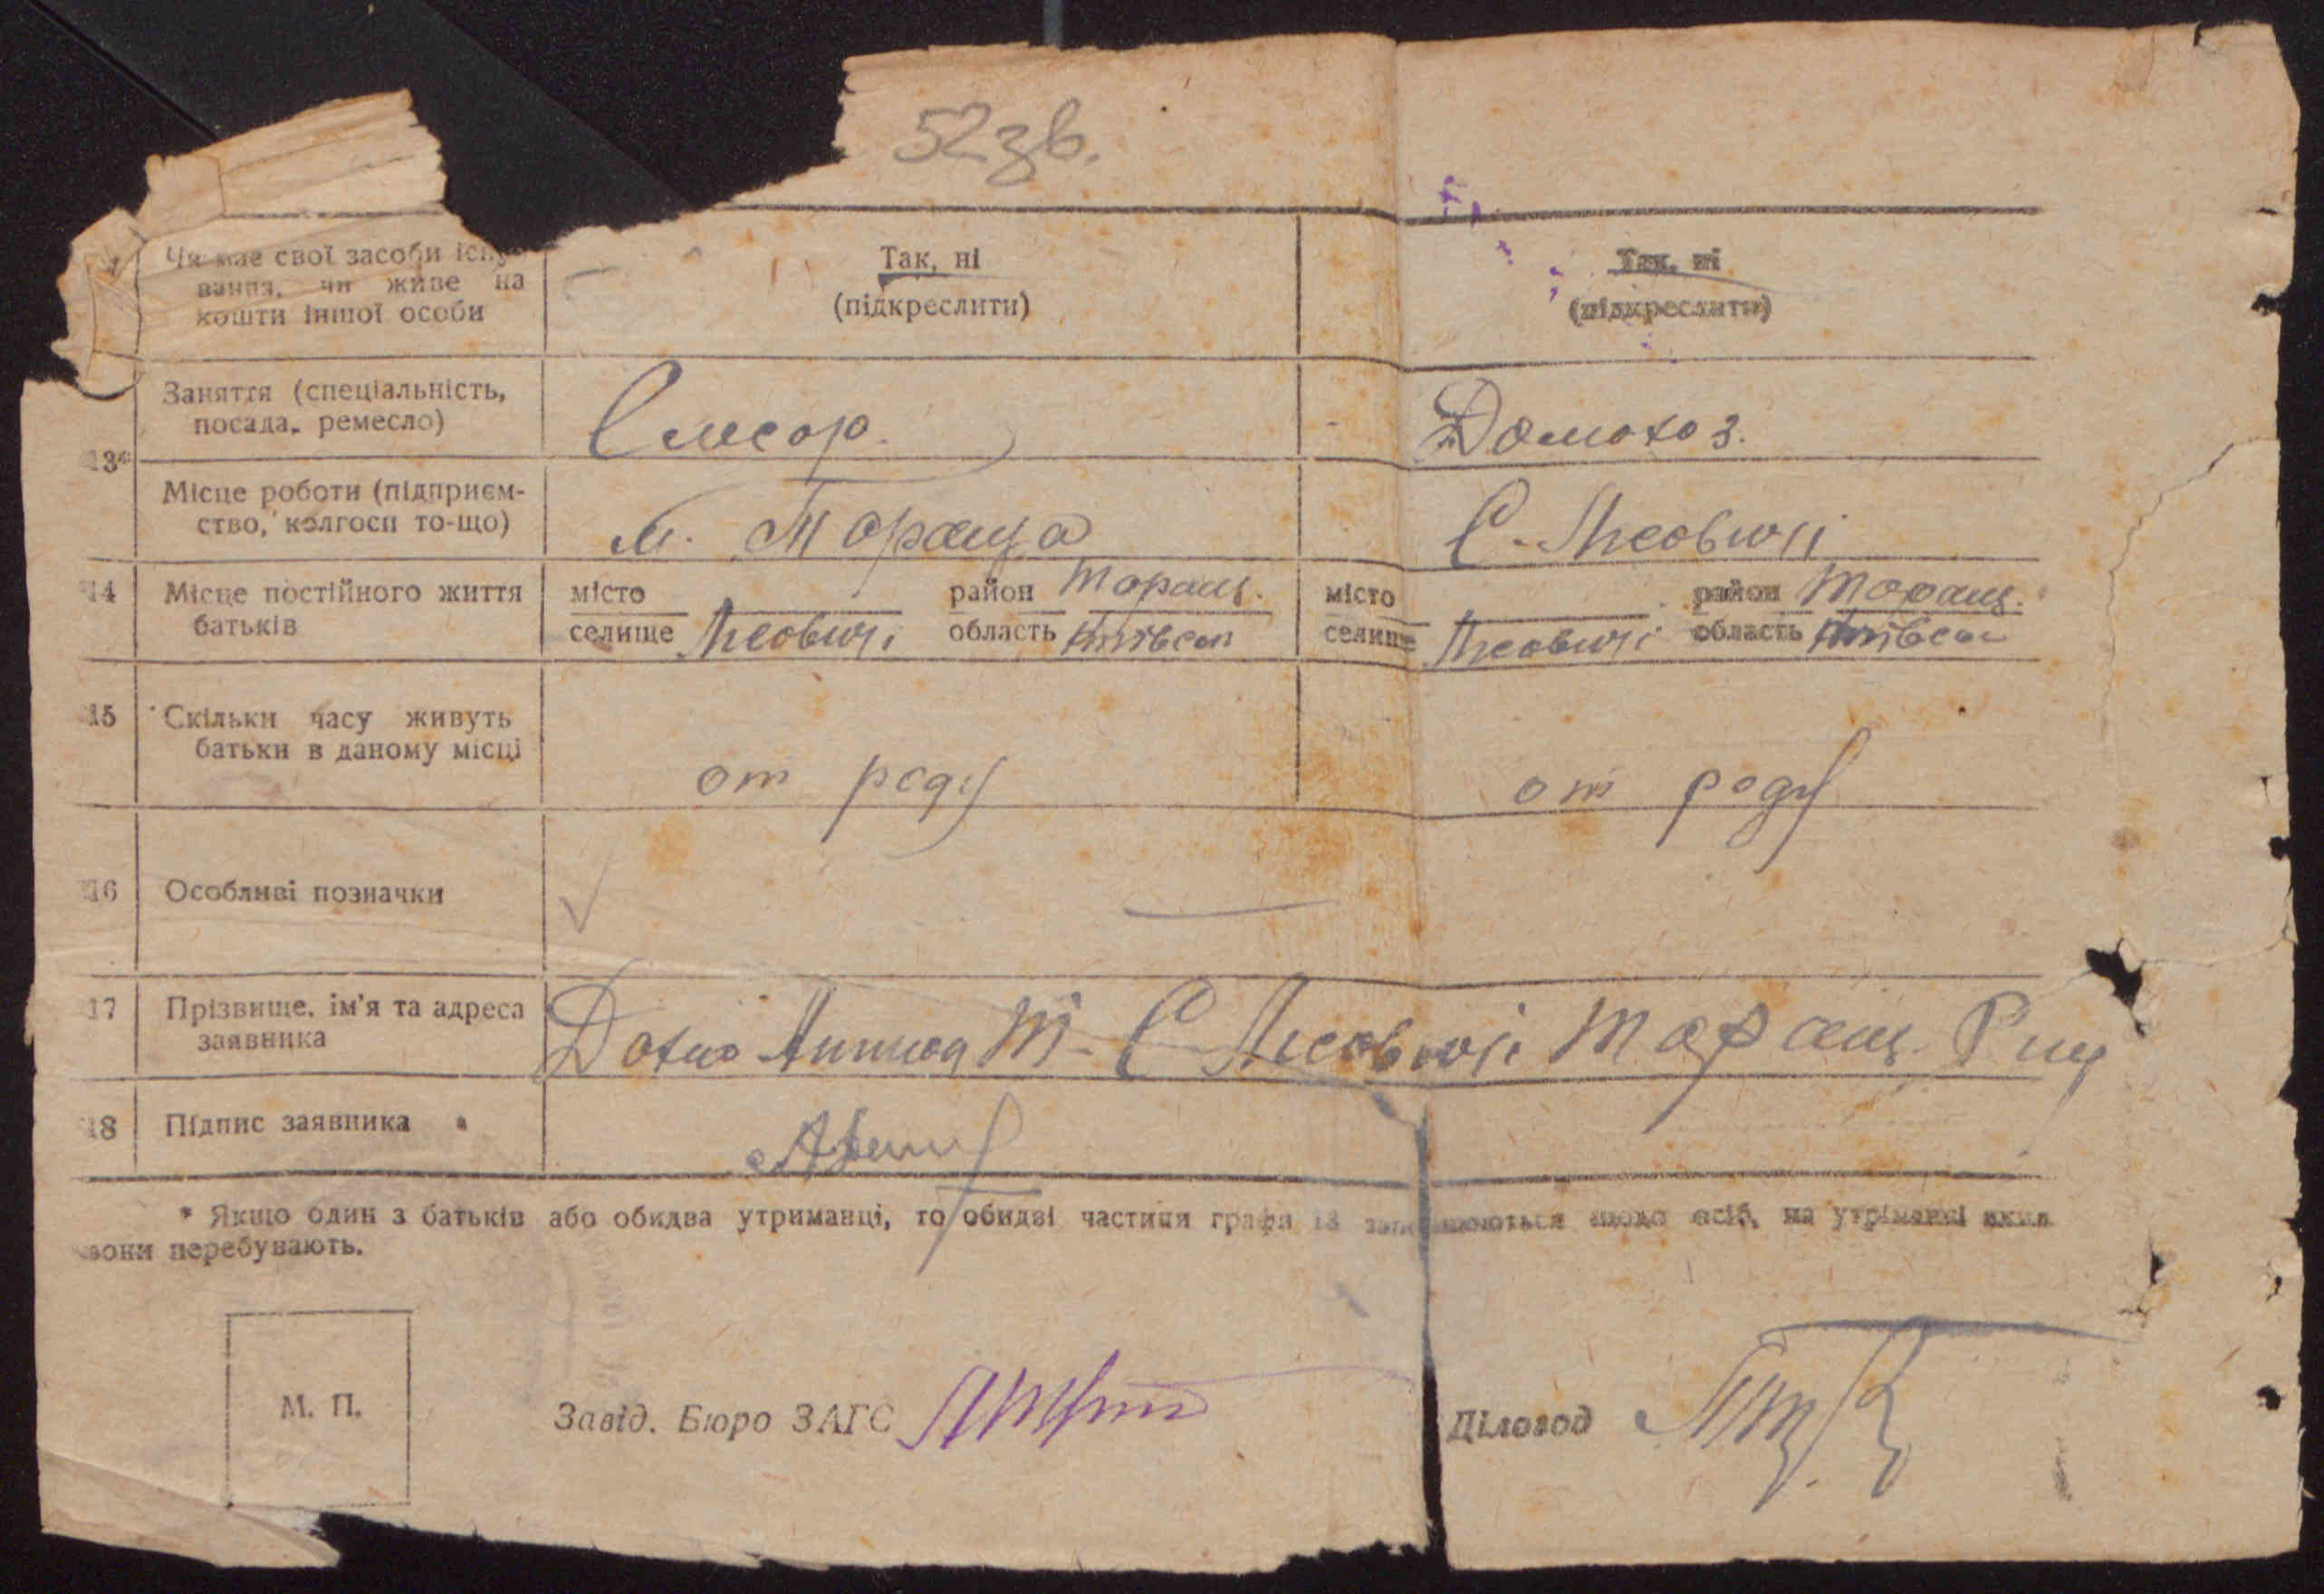 52 зв.
Чи має свої засоби існу-
вання, чи живе на
кошти іншої особи
Так, ні
(підкреслити)
Так, ні
(підкреслити)
13*
Заняття (спеціальність,
посада, ремесло)
Слюсар.
Домохоз.
Місце роботи (підприєм-
ство, колгосп то-що)
м. Тараща
С. Лісовичі
14
Місце постійного життя
батьків
місто
селище Лісовичі
район Таращ.
область Київськ
місто
селище Лісовичі
район Таращ.
область Київськ
15
Скільки часу живуть
батьки в даному місці
от роду
от роду
16
Особливі позначки
17
Прізвище, ім'я та адреса
заявника
С Лісовичі Таращ.
18
Підпис заявника
* Якщо один з батьків або обидва утриманці, то обидві частини графи 13 заповнюються щодо осіб, на утриманні яких
вони перебувають.
М. П.
Завід. Бюро ЗАГС
Діловод